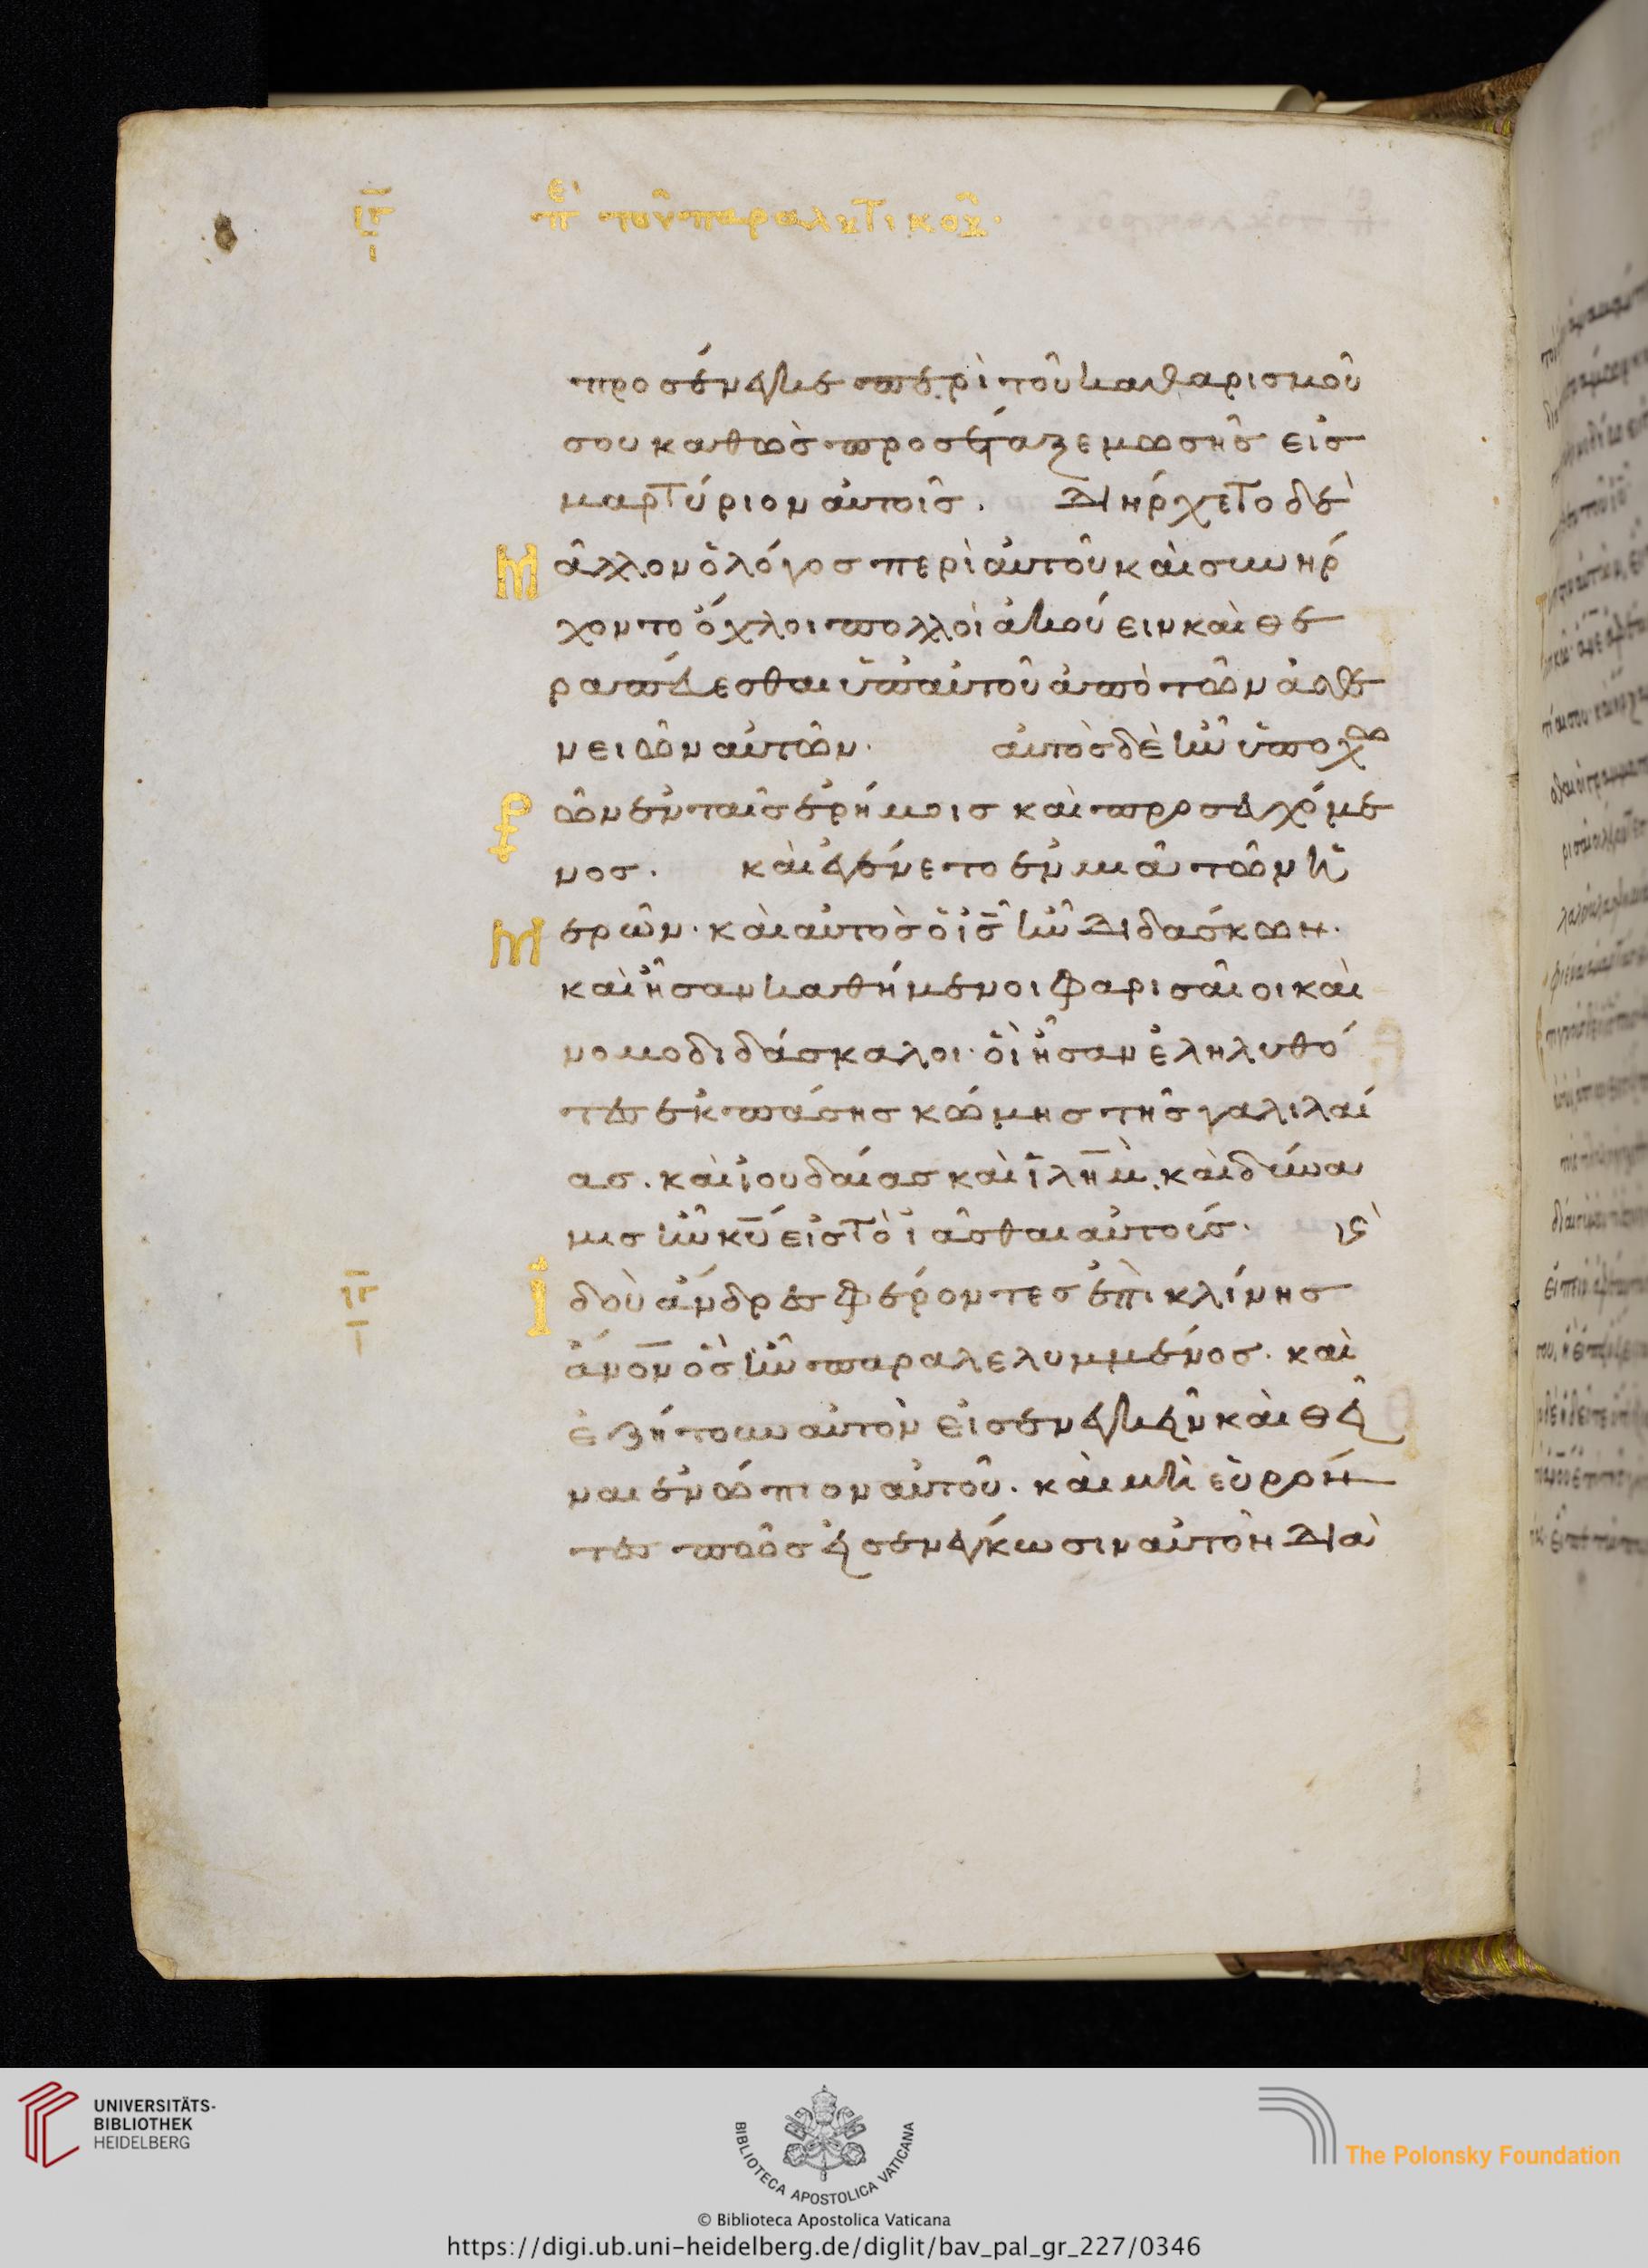 ιγ επι του παραλυτικου·
ι
προσένεγκε περὶ τοῦ καθαρισμοῦ
σου καθὼς προσέταξε μωσῆς εἰσ
μαρτύριον αὐτοῖς. Διήρχετο δὲ
Μᾶλλον ὁ λόγοσ περὶ αὐτοῦ καὶ συνήρ
χοντο ὄχλοι πολλοὶ ἀκούειν καὶ θε
ραπεύεσθαι ὑπ αὐτοῦ ἀπὸ τῶν ἀσθε
νειῶν αὐτῶν· αὐτὸσ δὲ ἦν ὑποχω
ρῶν ἐν ταῖσ ἐρήμοισ καὶ προσευχόμε
νοσ. καὶ ἐγένετο ἐν μιᾶ τῶν ἡ
Μερῶν· καὶ αὐτὸσ ὁ ἰσ ἦν Διδάσκων·
καὶ ἦσαν καθήμενοι φαρισαῖοι καὶ
νομοδιδάσκαλοι· οἳ ἦσαν ἐληλυθό
τεσ ἐκ πάσησ κώμησ τῆσ γαλιλαί
ασ. καὶ ἰουδαίασ καὶ ἰλημ. καὶ δύνα
μισ ἦν κυ εἰσ τὸ ἰᾶσθαι αὐτούσ. κὶ
Ἰδοὺ ἄνδρεσ φέροντεσ ἐπὶ κλίνησ
ἄνον ὃσ ἦν παραλελυμμένοσ. καὶ
ἐζήτουν αὐτὸν εἰσενεγκεῖν καὶ θεῖ
ναι ἐνώπιον αὐτοῦ. καὶ μὴ εὑρόν
τεσ πῶσ εἰσενέγκωσιν αὐτὸν Διὰ
UNIVERSITÄTS-
BIBLIOTHEK
HEIDELBERG
BIBLIOTECA APOSTOLICA VATICANA
The Polonsky Foundation
© Biblioteca Apostolica Vaticana
https://digi.ub.uni-heidelberg.de/diglit/bav_pal_gr_227/0346